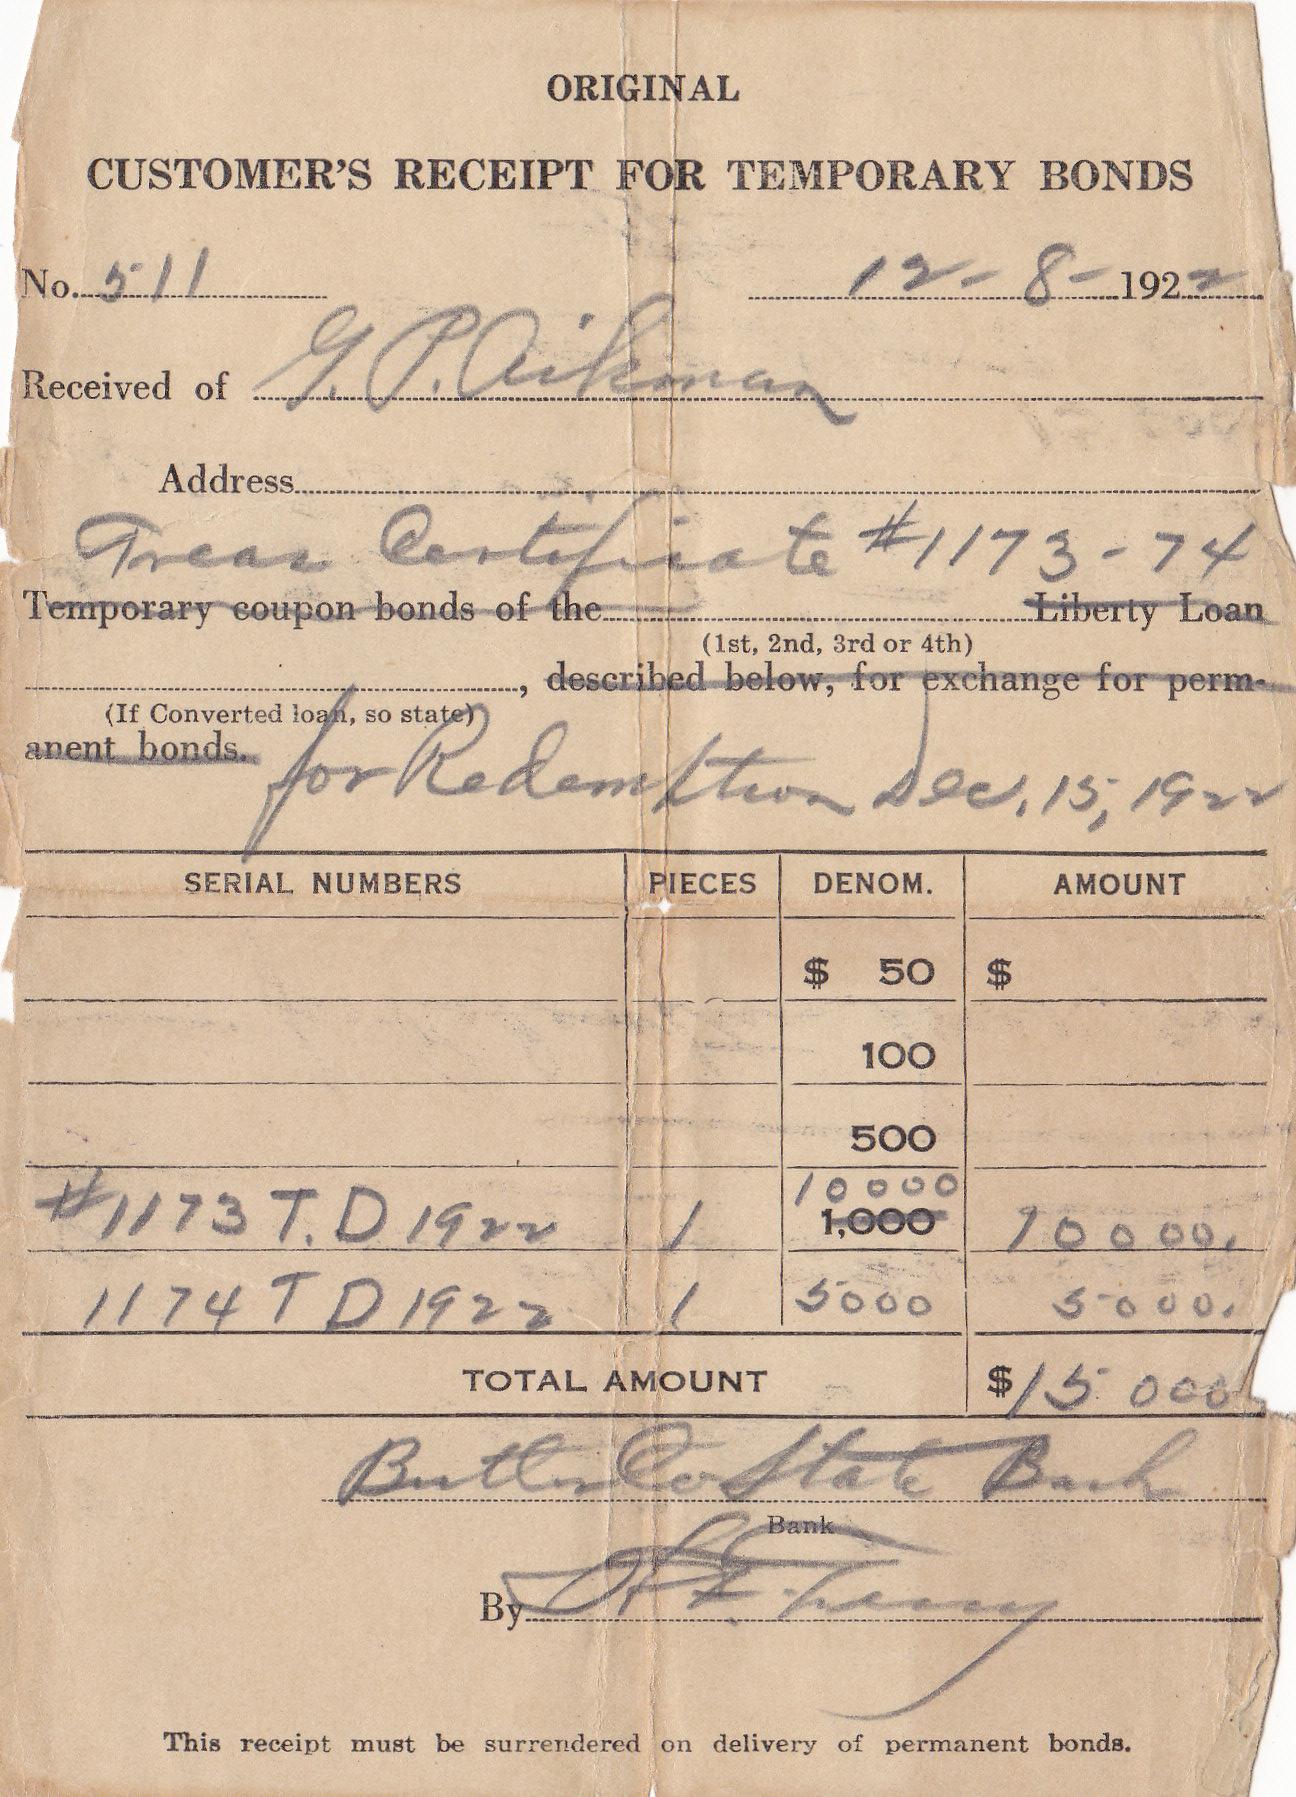 ORIGINAL
CUSTOMER'S RECEIPT FOR TEMPORARY BONDS
No. 511 12-8-1922
Received of G. P. Aikman
Address
Treas Certificate #1173-74
Temporary coupon bonds of the Liberty Loan
(1st, 2nd, 3rd or 4th)
, described below, for exchange for perm-
(If Converted loan, so state)
anent bonds. for Redemption Dec. 15, 1922
SERIAL NUMBERS PIECES DENOM. AMOUNT
$ 50 $
100
500
10000
#1173 T.D 1922 1 1,000 10000.
1174 T D 1922 1 5000 5000.
TOTAL AMOUNT $15000
Butler Co State Bank
Bank
By
This receipt must be surrendered on delivery of permanent bonds.